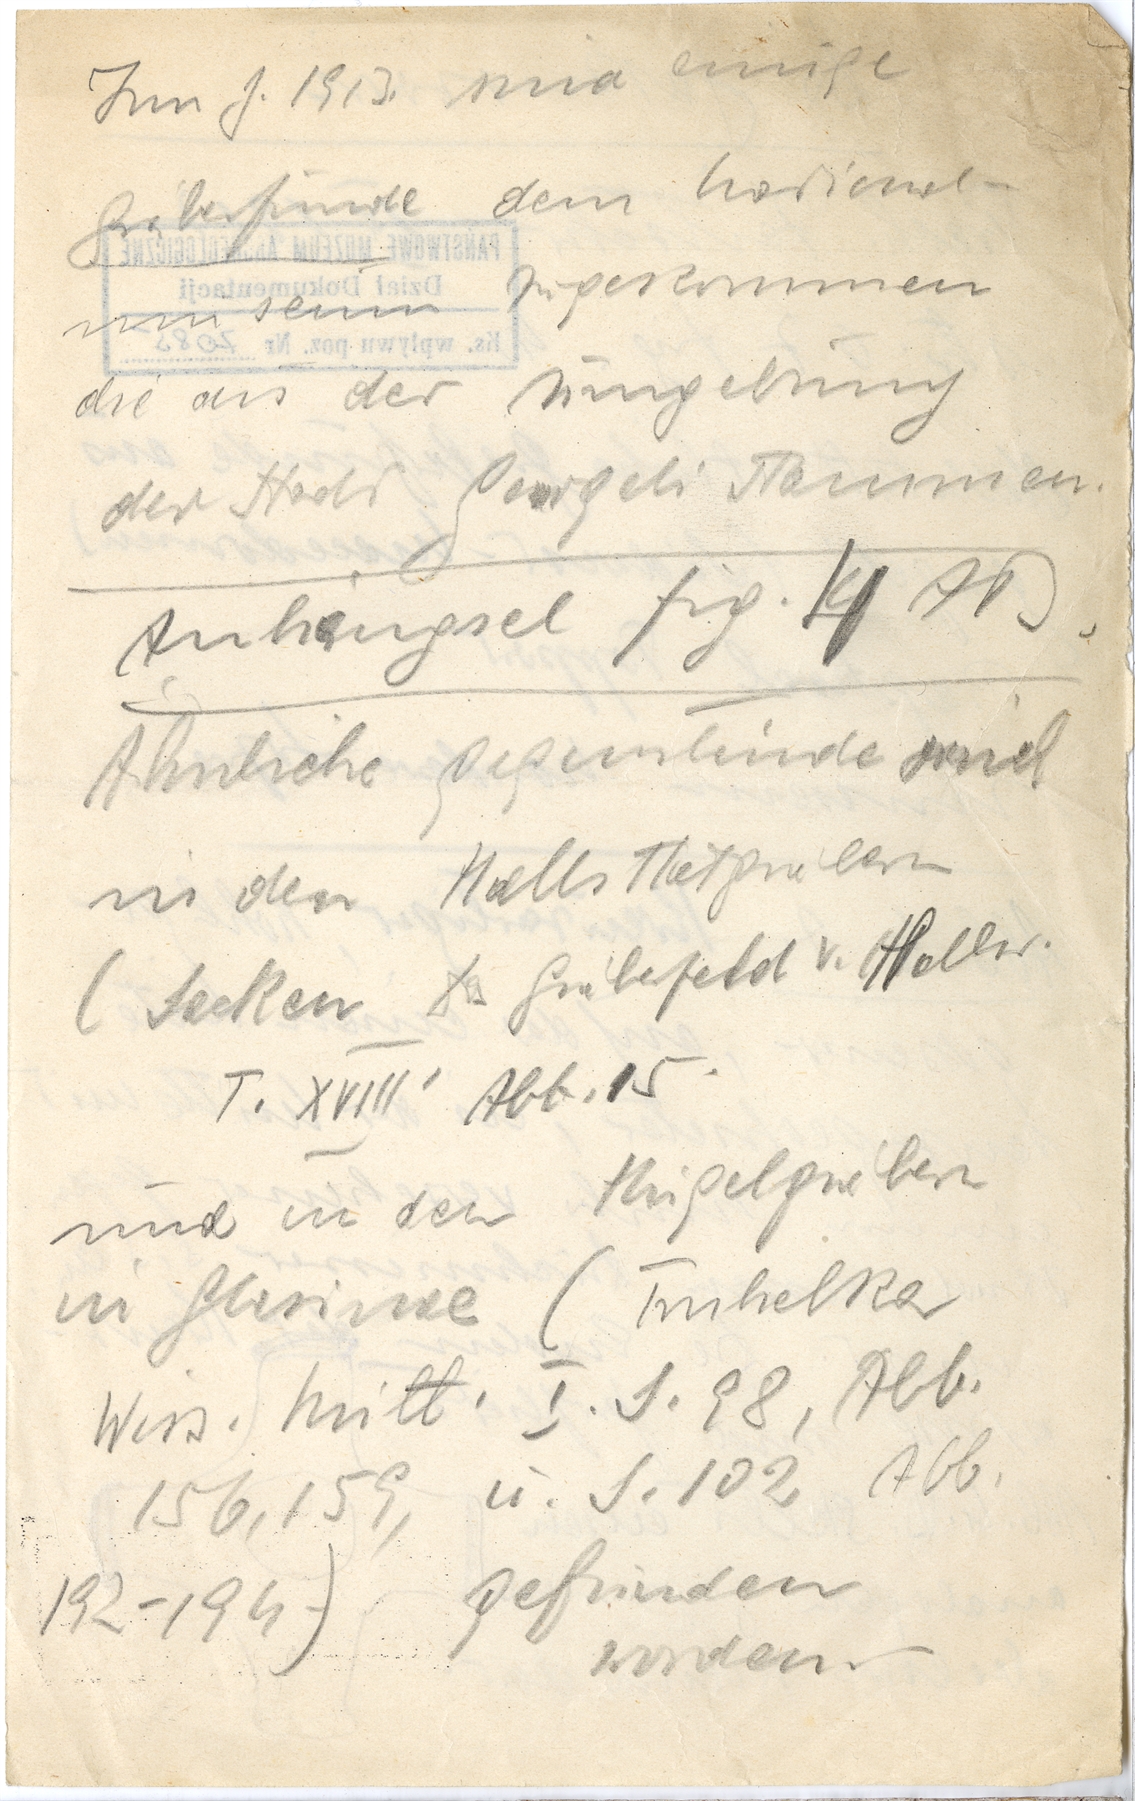 Im J. 1913. sind einige
Gräberfunde dem National-
museum zugekommen
die aus der Umgebung
der Stadt Gevgeli stammen.
Anhängsel fig. Abb.
Ähnliche Gegenstände sind
in den Hallstattgräbern
( Sacken Gräberfeld v. Hallst.
T. XVIII' Abb. 15.
und in den Hügelgräbern
in Glasinac ( Truhelka
Wiss. Mitt. I. S. 98, Abb.
156, 159, u. S. 102 Abb.
192-194) gefunden
worden
PAŃSTWOWE MUZEUM ARCHEOLOGICZNE
Dział Dokumentacji
Ks. wpływu poz. Nr 2085